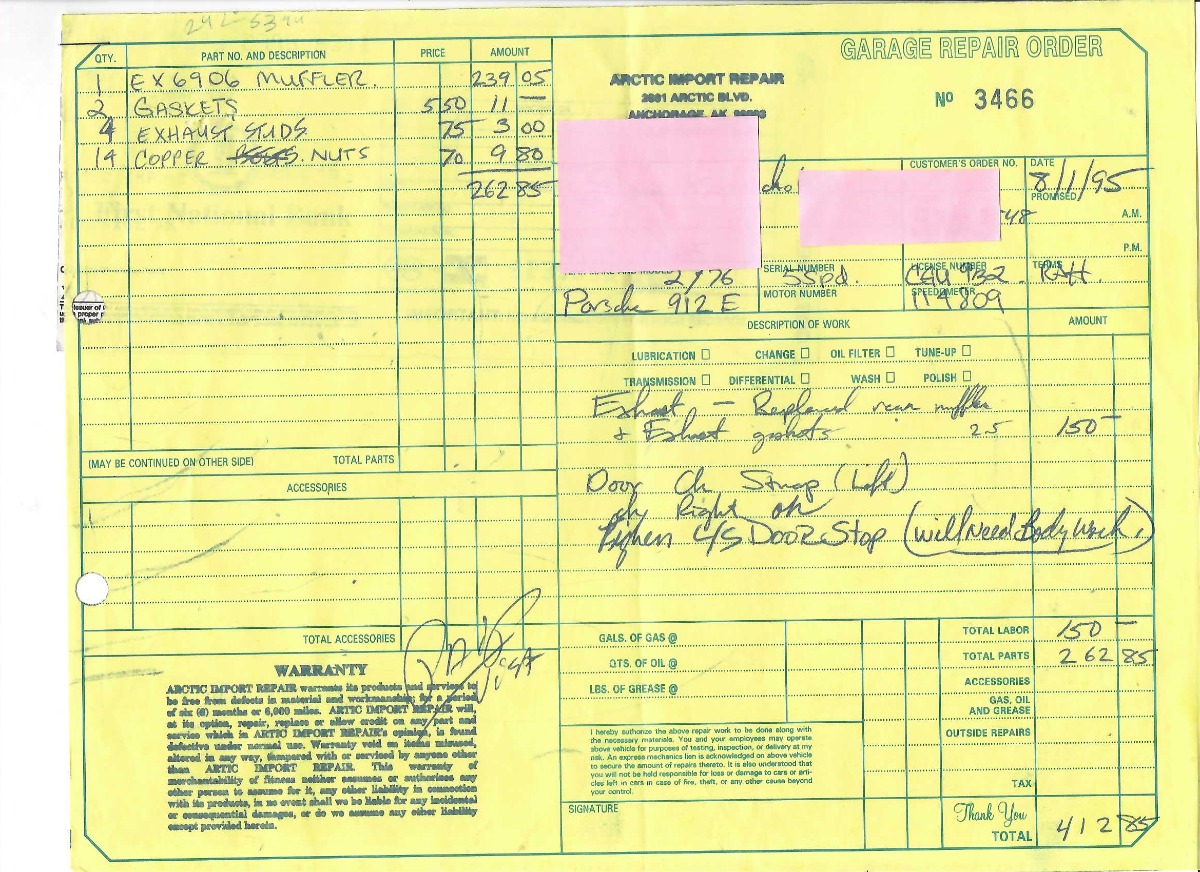 242-5344
QTY. PART NO. AND DESCRIPTION PRICE AMOUNT
1 EX6906 MUFFLER. 239 05
2 GASKETS 5 50 11 —
4 EXHAUST STUDS 75 3 00
14 COPPER NUTS 70 9 80
262 85
(MAY BE CONTINUED ON OTHER SIDE) TOTAL PARTS
ACCESSORIES
TOTAL ACCESSORIES
WARRANTY
ARCTIC IMPORT REPAIR warrants its products and services to
be free from defects in material and workmanship; for a period
of six (6) months or 6,000 miles. ARTIC IMPORT REPAIR will,
at its option, repair, replace or allow credit on any part and
service which in ARTIC IMPORT REPAIR's opinion, is found
defective under normal use. Warranty void on items misused,
altered in any way, tampered with or serviced by anyone other
than ARTIC IMPORT REPAIR. This warranty of
merchantability of fitness neither assumes or authorizes any
other person to assume for it, any other liability in connection
with its products, in no event shall we be liable for any incidental
or consequential damages, or do we assume any other liability
except provided herein.
GARAGE REPAIR ORDER
ARCTIC IMPORT REPAIR
2601 ARCTIC BLVD.
ANCHORAGE, AK
No 3466
CUSTOMER'S ORDER NO. DATE
8/1/95
PROMISED
A.M.
P.M.
48
SERIAL NUMBER LICENSE NUMBER TERMS
2/76 5spd.
MOTOR NUMBER SPEEDOMETER
Porsche 912E
DESCRIPTION OF WORK AMOUNT
LUBRICATION CHANGE OIL FILTER TUNE-UP
TRANSMISSION DIFFERENTIAL WASH POLISH
Exhaust — Replaced rear muffler
+ Exhaust gaskets 2.5 150—
Door Ck Strap (Left)
Right ok
Tighten Door Stop (Will Need Body Work.)
GALS. OF GAS @
QTS. OF OIL @
LBS. OF GREASE @
I hereby authorize the above repair work to be done along with
the necessary materials. You and your employees may operate
above vehicle for purposes of testing, inspection, or delivery at my
risk. An express mechanics lien is acknowledged on above vehicle
to secure the amount of repairs thereto. It is also understood that
you will not be held responsible for loss or damage to cars or arti-
cles left in cars in case of fire, theft, or any other cause beyond
your control.
SIGNATURE
TOTAL LABOR 150 —
TOTAL PARTS 262 85
ACCESSORIES
GAS, OIL
AND GREASE
OUTSIDE REPAIRS
TAX
Thank You
TOTAL 412 85